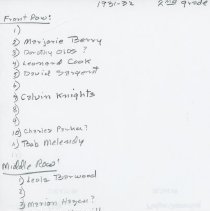 1931-32 2nd grade
Front Row:
1)
2) Marjorie Berry
3) Dorothy Olds ?
4) Leonard Cook
5) David Sargent
6)
7) Calvin Knights
8)
9)
10) Charles Parker?
11) Bob Melendy
Middle Row:
1) Leola Barwood
2)
3) Marion Hagen?